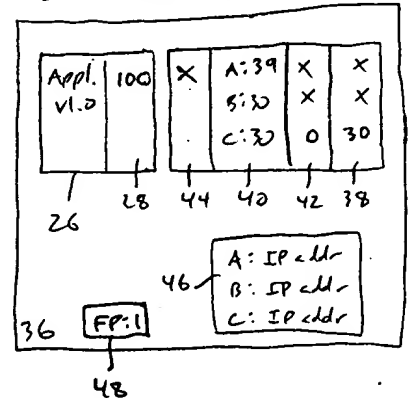 Appl. 100 X A:39 X X
v1.0 B:30 X X
C:30 0 30
26 28 44 40 42 38
46 A: IP addr
B: IP addr
C: IP addr
36 FP:1
48